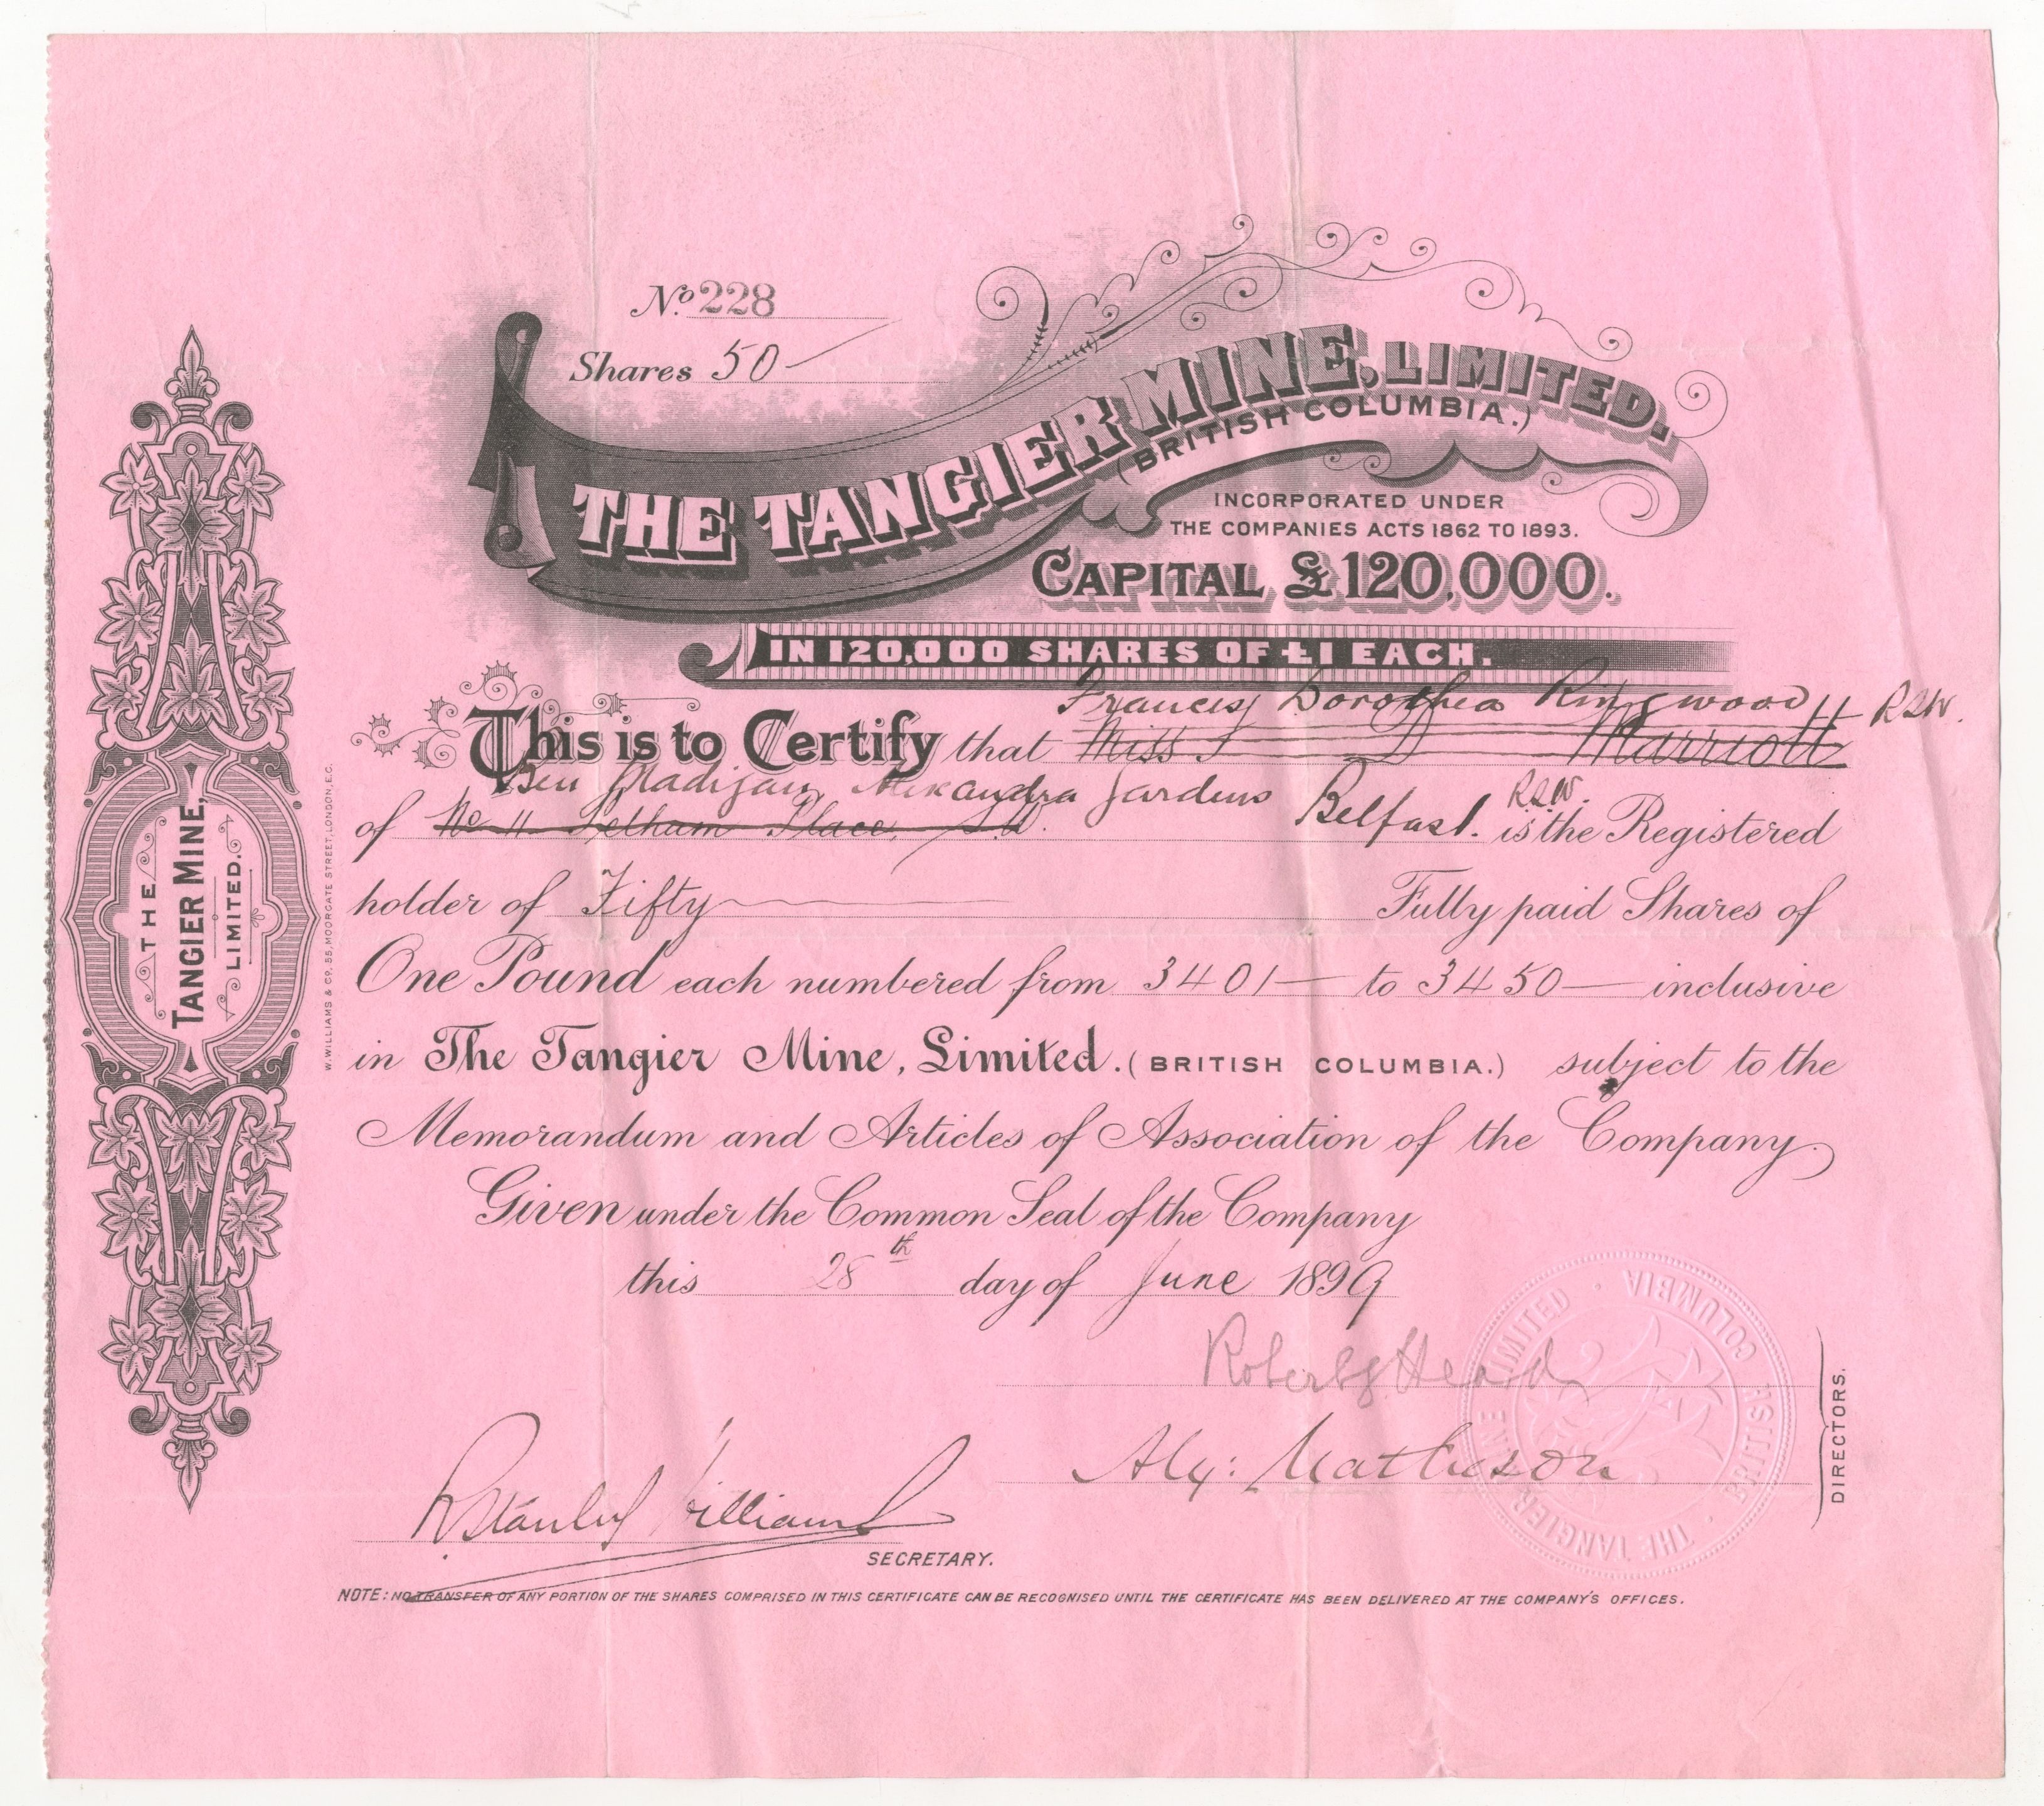 No. 228
Shares 50
THE TANGIER MINE, LIMITED.
(BRITISH COLUMBIA.)
INCORPORATED UNDER
THE COMPANIES ACTS 1862 TO 1893.
CAPITAL £120,000.
IN 120,000 SHARES OF £1 EACH.
Frances Dorothea Ringwood RSW.
This is to Certify that Miss Marriott
Ben Madigan, Alexandra Gardens Belfast. RSW.
of No 11 Place, is the Registered
holder of Fifty Fully paid Shares of
One Pound each numbered from 3401 to 3450 inclusive
in The Tangier Mine, Limited. (BRITISH COLUMBIA.) subject to the
Memorandum and Articles of Association of the Company.
Given under the Common Seal of the Company
this 28th day of June 1899
Robert Heard
Alx: Matheson
DIRECTORS.
R Stanley Williams
SECRETARY.
NOTE: NO TRANSFER OF ANY PORTION OF THE SHARES COMPRISED IN THIS CERTIFICATE CAN BE RECOGNISED UNTIL THE CERTIFICATE HAS BEEN DELIVERED AT THE COMPANY'S OFFICES.
THE
TANGIER MINE,
LIMITED.
W. WILLIAMS & CO. 55, MOORGATE STREET, LONDON, E.C.
THE TANGIER MINE LIMITED · BRITISH COLUMBIA ·